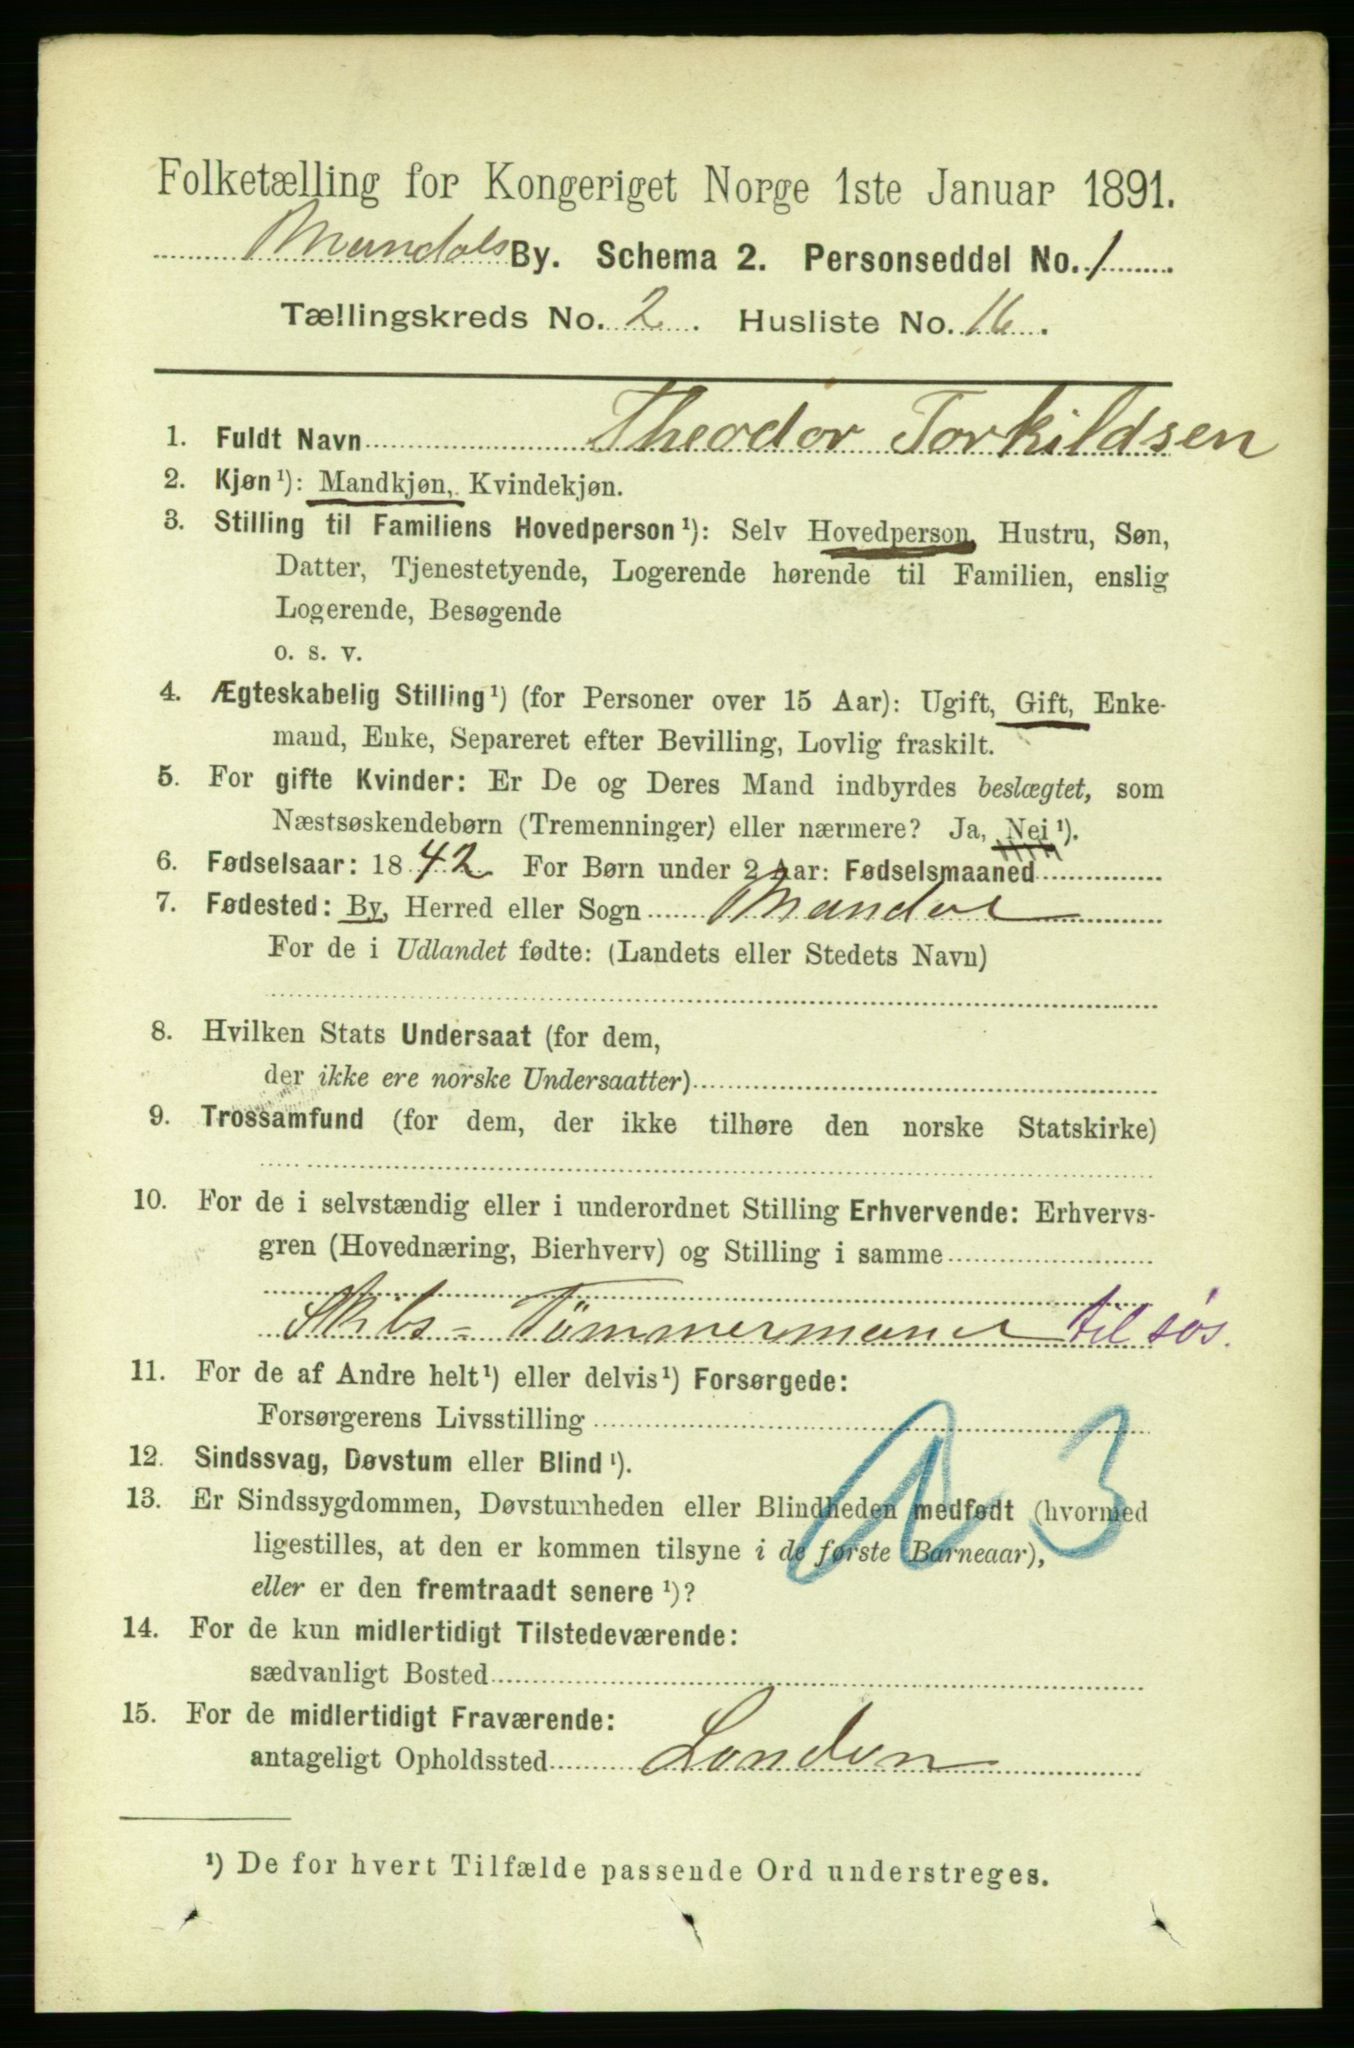 Folketælling for Kongeriget Norge 1ste Januar 1891.
Mandals By. Schema 2. Personseddel No. 1
Tællingskreds No. 2. Husliste No. 16.
1. Fuldt Navn Theodor Torkildsen
2. Kjøn ¹): Mandkjøn, Kvindekjøn.
3. Stilling til Familiens Hovedperson ¹): Selv Hovedperson, Hustru, Søn,
Datter, Tjenestetyende, Logerende hørende til Familien, enslig
Logerende, Besøgende
o. s. v.
4. Ægteskabelig Stilling ¹) (for Personer over 15 Aar): Ugift, Gift, Enke-
mand, Enke, Separeret efter Bevilling, Lovlig fraskilt.
5. For gifte Kvinder: Er De og Deres Mand indbyrdes beslægtet, som
Næstsøskendebørn (Tremenninger) eller nærmere? Ja, Nei ¹).
6. Fødselsaar: 1842 For Børn under 2 Aar: Fødselsmaaned
7. Fødested: By, Herred eller Sogn Mandal
For de i Udlandet fødte: (Landets eller Stedets Navn)
8. Hvilken Stats Undersaat (for dem,
der ikke ere norske Undersaatter)
9. Trossamfund (for dem, der ikke tilhøre den norske Statskirke)
10. For de i selvstændig eller i underordnet Stilling Erhvervende: Erhvervs-
gren (Hovednæring, Bierhverv) og Stilling i samme
Skibs-Tömmermand til søs.
11. For de af Andre helt ¹) eller delvis ¹) Forsørgede:
Forsørgerens Livsstilling
12. Sindssvag, Døvstum eller Blind ¹).
13. Er Sindssygdommen, Døvstumheden eller Blindheden medfødt (hvormed
ligestilles, at den er kommen tilsyne i de første Barneaar),
eller er den fremtraadt senere ¹)?
14. For de kun midlertidigt Tilstedeværende:
sædvanligt Bosted
15. For de midlertidigt Fraværende:
antageligt Opholdssted London
¹) De for hvert Tilfælde passende Ord understreges.